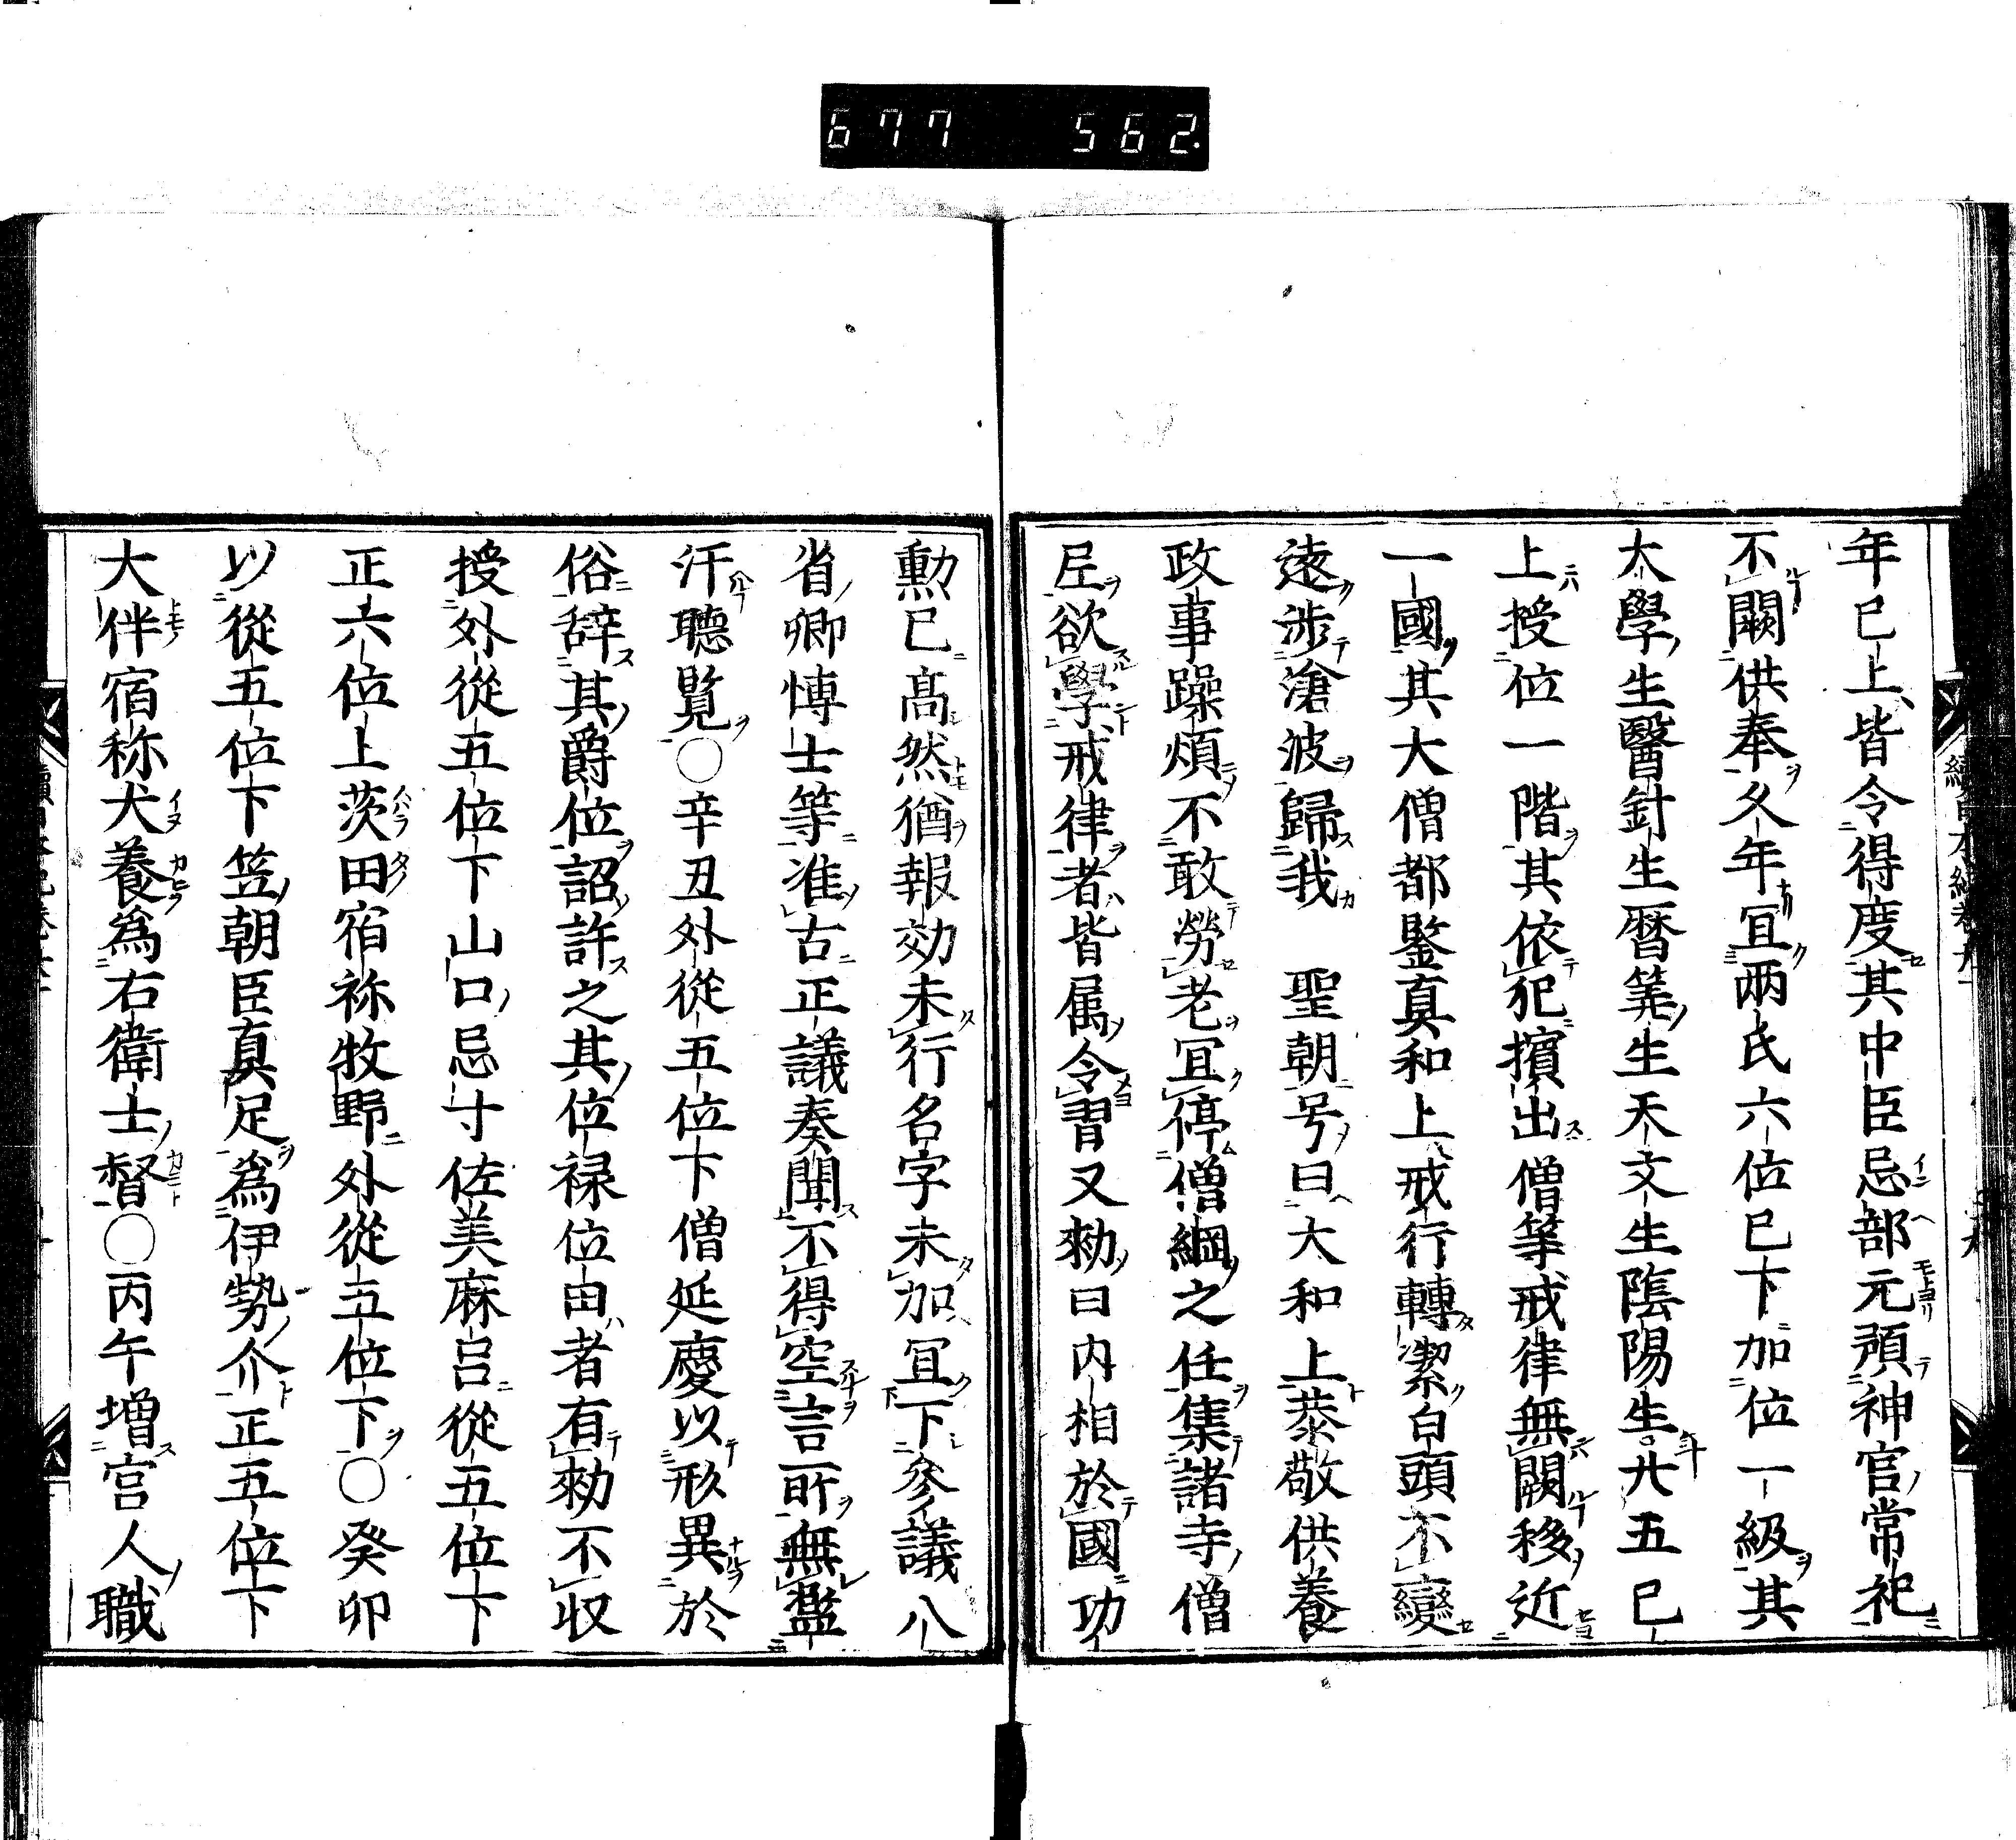 677 562.
年已上皆令得度其中臣忌部元預神官常祀
不闕供奉久年冝兩氏六位已下加位一級其
大學生醫針生暦筭生天文生隂陽生年廿五已
上授位一階其依犯擯出僧等戒律無闕移近
一國其大僧都鑒真和上戒行轉潔白頭不變
遠渉滄波歸我　聖朝号曰大和上恭敬供養
政事躁煩不敢勞老冝停僧綱之任集諸寺僧
尼欲學戒律者皆属令習又勑曰内相於國功
勳已高然猶報効未行名字未加冝下参議八
省卿博士等准古正議奏聞不得空言所無濫
汗聽覧〇辛丑外從五位下僧延慶以形異於
俗辞其爵位詔許之其位禄位田者有勑不収
授外從五位下山口忌寸佐美麻呂從五位下
正六位上茨田宿祢牧野外從五位下〇癸卯
以從五位下笠朝臣真足爲伊勢介正五位下
大伴宿祢犬養爲右衛士督〇丙午増宫人職